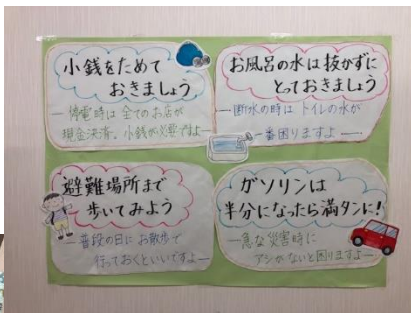 小銭をためて
おきましょう
停電時は全てのお店が
現金決済。小銭が必要ですよ
お風呂の水は抜かずに
とっておきましょう
断水の時はトイレの水が
一番困りますよ
避難場所まで
歩いてみよう
普段の日にお散歩で
行っておくといいですよ
ガソリンは
半分になったら満タンに!
急な災害時に
アシがないと困りますよ